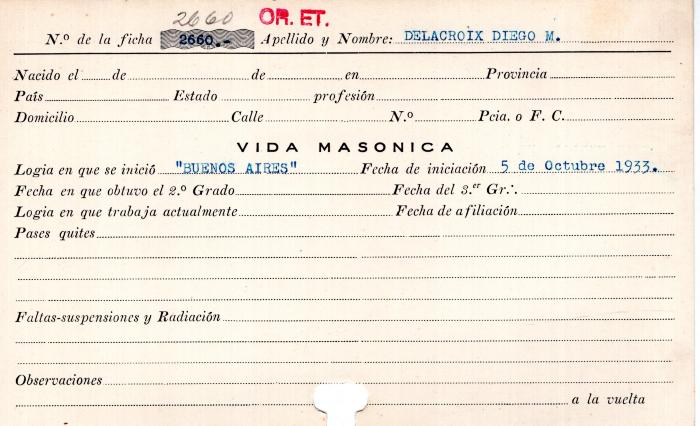 2660 OR. ET.
N.º de la ficha 2660.- Apellido y Nombre: DELACROIX DIEGO M.
Nacido el de de en Provincia
País Estado profesión
Domicilio Calle N.º Pcia. o F. C.
VIDA MASONICA
Logia en que se inició "BUENOS AIRES" Fecha de iniciación 5 de Octubre 1933.
Fecha en que obtuvo el 2.º Grado Fecha del 3.er Gr∴
Logia en que trabaja actualmente Fecha de afiliación
Pases quites
Faltas-suspensiones y Radiación
Observaciones
a la vuelta